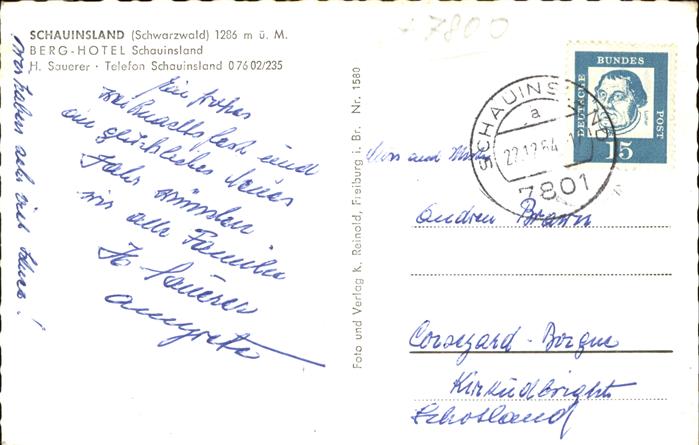 SCHAUINSLAND (Schwarzwald) 1286 m ü. M.
BERG-HOTEL Schauinsland
H. Sauerer · Telefon Schauinsland 0 76 02/235
Ein frohes
Weihnachtsfest und
ein glückliches Neues
Jahr wünschen
wir alle Familie
H. Sauerer
Annegrete
Wir haben sehr viel Schnee!
Foto und Verlag K. Reinold, Freiburg i. Br. Nr. 1580
+ 7800
DEUTSCHE BUNDES POST
Luther
15
SCHAUINSLAND
a
22.12.64
7801
and
Andrew Brown
Corsegard - Borgue
Kirkudbright
Schottland